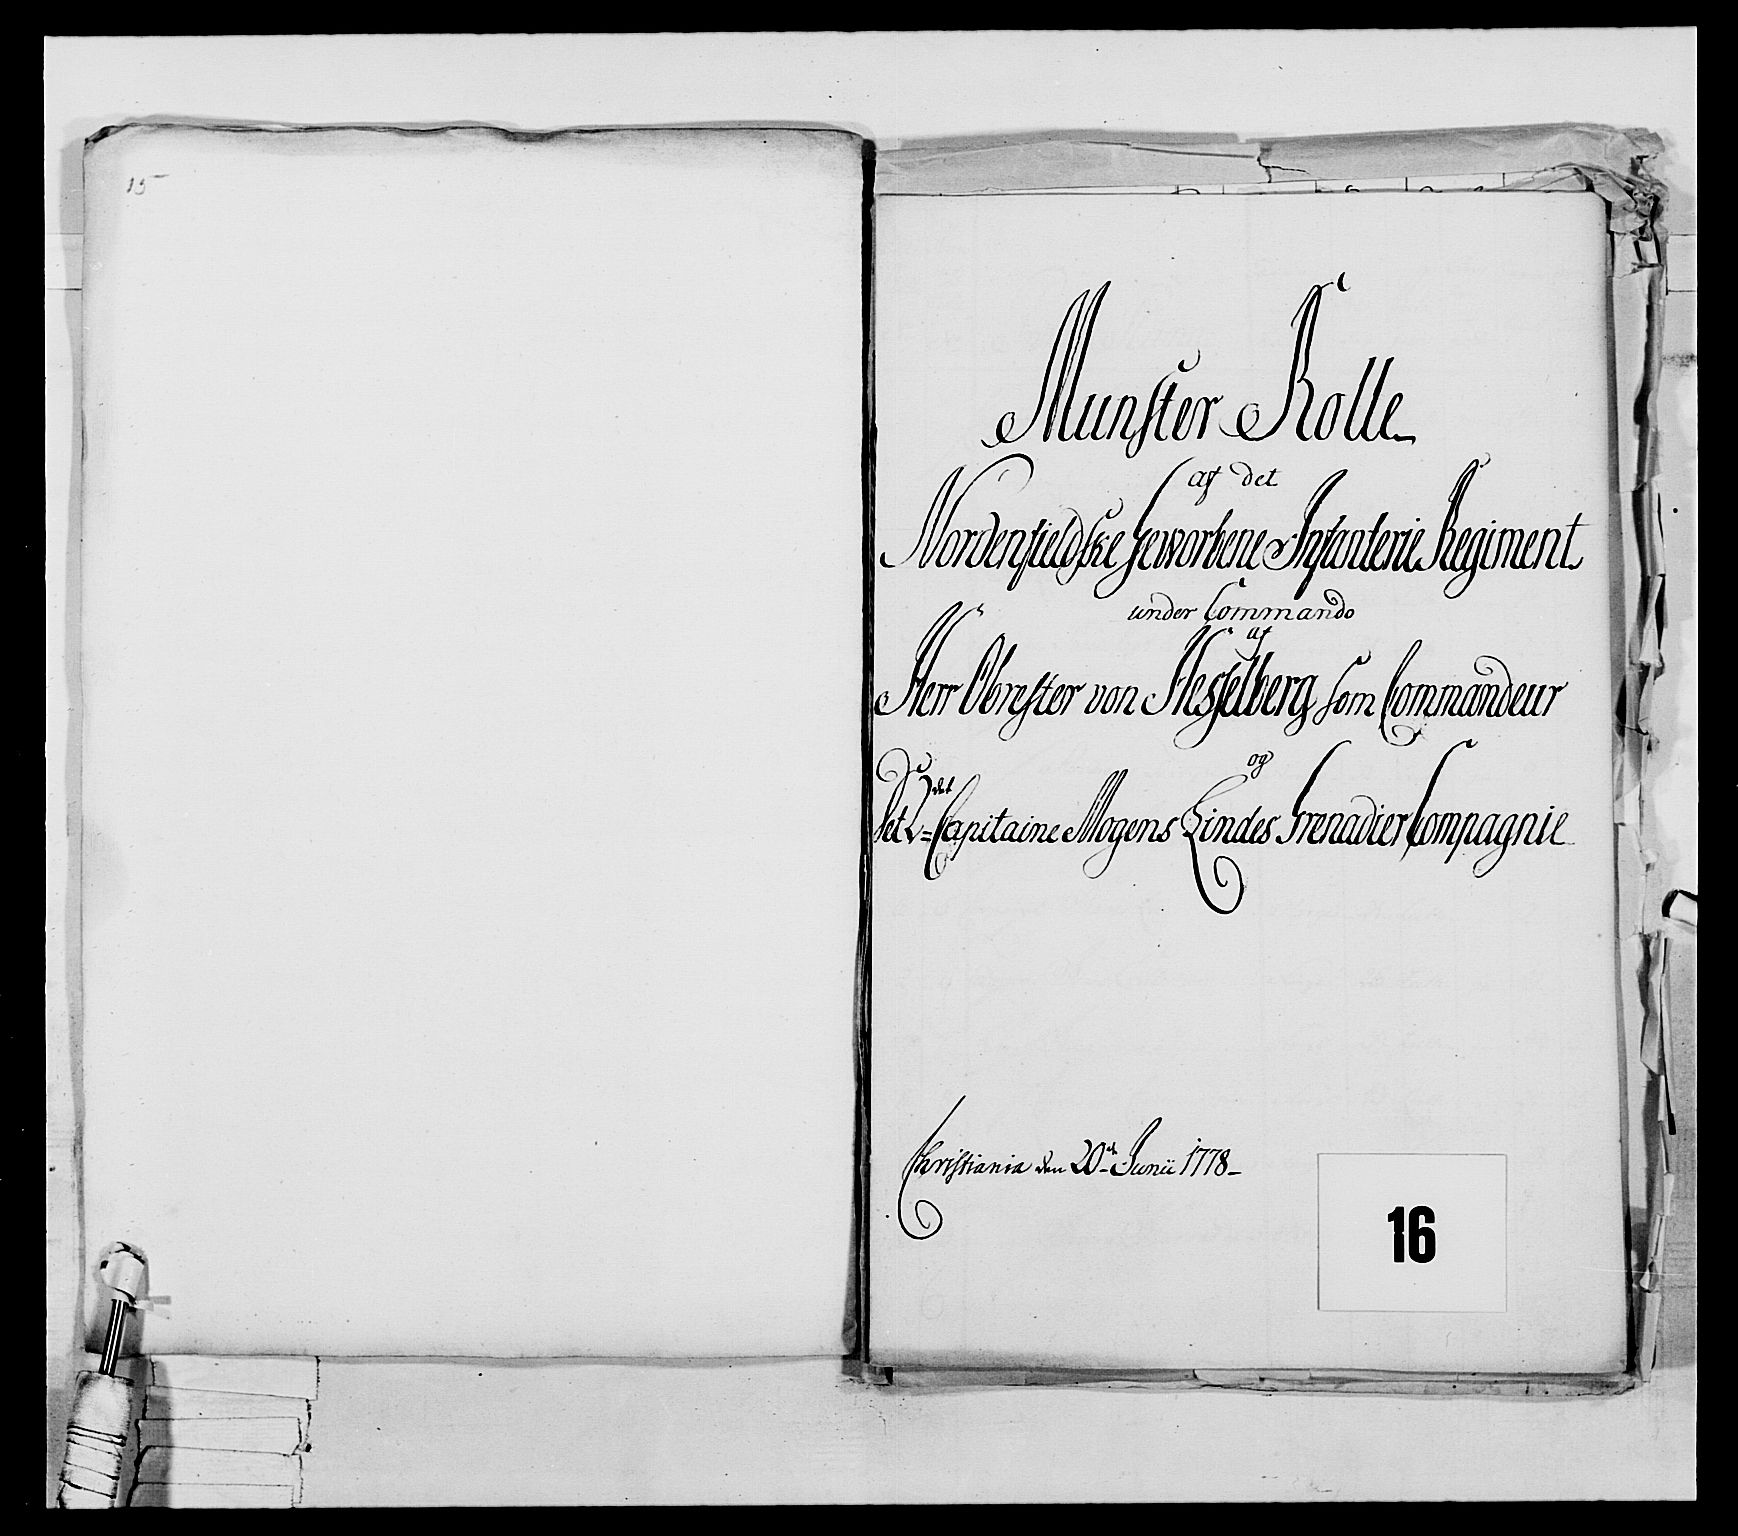 15
Munster Rolle
af det
Nordenfieldske Geworbene Infanterie Regiment
under Commando
af
Herr Obrester von Hesselberg som Commandeur
og
det
Capitaine Mogens Lindes Grenadier Compagnie
Christiania den 20de Junii 1778
16